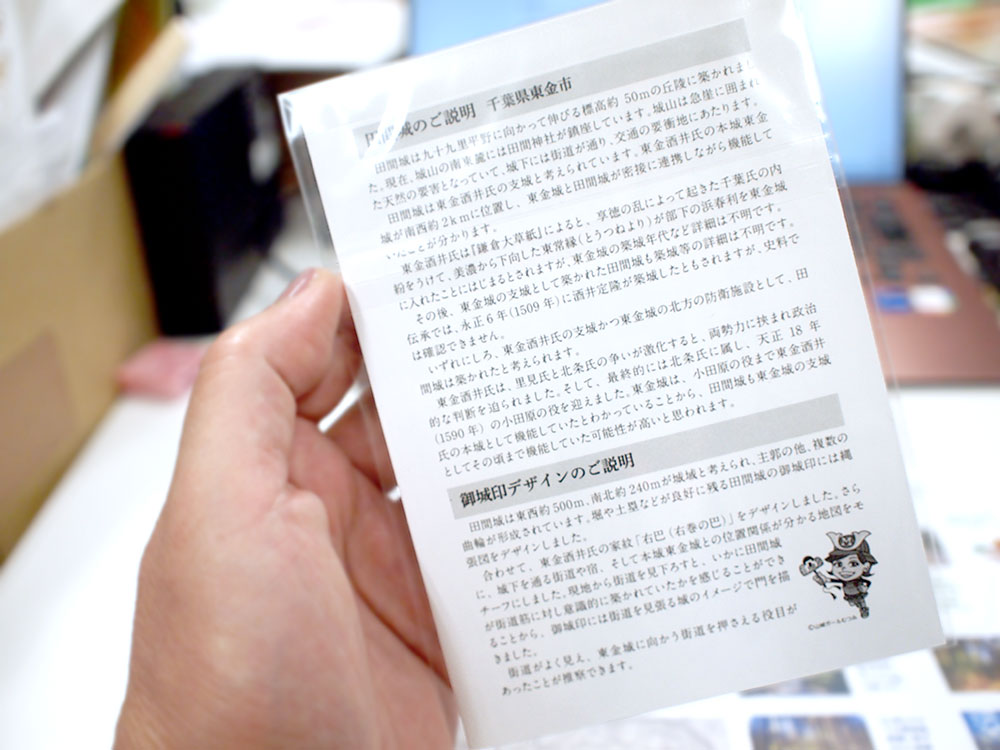 田間城のご説明 千葉県東金市
田間城は九十九里平野に向かって伸びる標高約 50mの丘陵に築かれまし
た。現在、城山の南東麓には田間神社が鎮座しています。城山は急崖に囲まれ
た天然の要害となっていて、城下には街道が通り、交通の要衝地にあたります。
田間城は東金酒井氏の支城と考えられています。東金酒井氏の本城東金
城が南西約2kmに位置し、東金城と田間城が密接に連携しながら機能して
いたことが分かります。
東金酒井氏は『鎌倉大草紙』によると、享徳の乱によって起きた千葉氏の内
紛をうけて、美濃から下向した東常縁(とうつねより)が部下の浜春利を東金城
に入れたことにはじまるとされますが、東金城の築城年代など詳細は不明です。
その後、東金城の支城として築かれた田間城も築城等の詳細は不明です。
伝承では、永正6年(1509年)に酒井定隆が築城したともされますが、史料で
は確認できません。
いずれにしろ、東金酒井氏の支城かつ東金城の北方の防衛施設として、田
間城は築かれたと考えられます。
東金酒井氏は、里見氏と北条氏の争いが激化すると、両勢力に挟まれ政治
的な判断を迫られました。そして、最終的には北条氏に属し、天正 18 年
(1590年)の小田原の役を迎えました。東金城は、小田原の役まで東金酒井
氏の本城として機能していたとわかっていることから、田間城も東金城の支城
としてその頃まで機能していた可能性が高いと思われます。
御城印デザインのご説明
田間城は東西約500m、南北約240mが城域と考えられ、主郭の他、複数の
曲輪が形成されています。堀や土塁などが良好に残る田間城の御城印には縄
張図をデザインしました。
合わせて、東金酒井氏の家紋「右巴(右巻の巴)」をデザインしました。さら
に、城下を通る街道や宿、そして本城東金城との位置関係が分かる地図をモ
チーフにしました。現地から街道を見下ろすと、いかに田間城
が街道筋に対し意識的に築かれていたかを感じることができ
ることから、御城印には街道を見張る城のイメージで門を描
きました。
街道がよく見え、東金城に向かう街道を押さえる役目が
あったことが推察できます。
©山城ガールむつみ